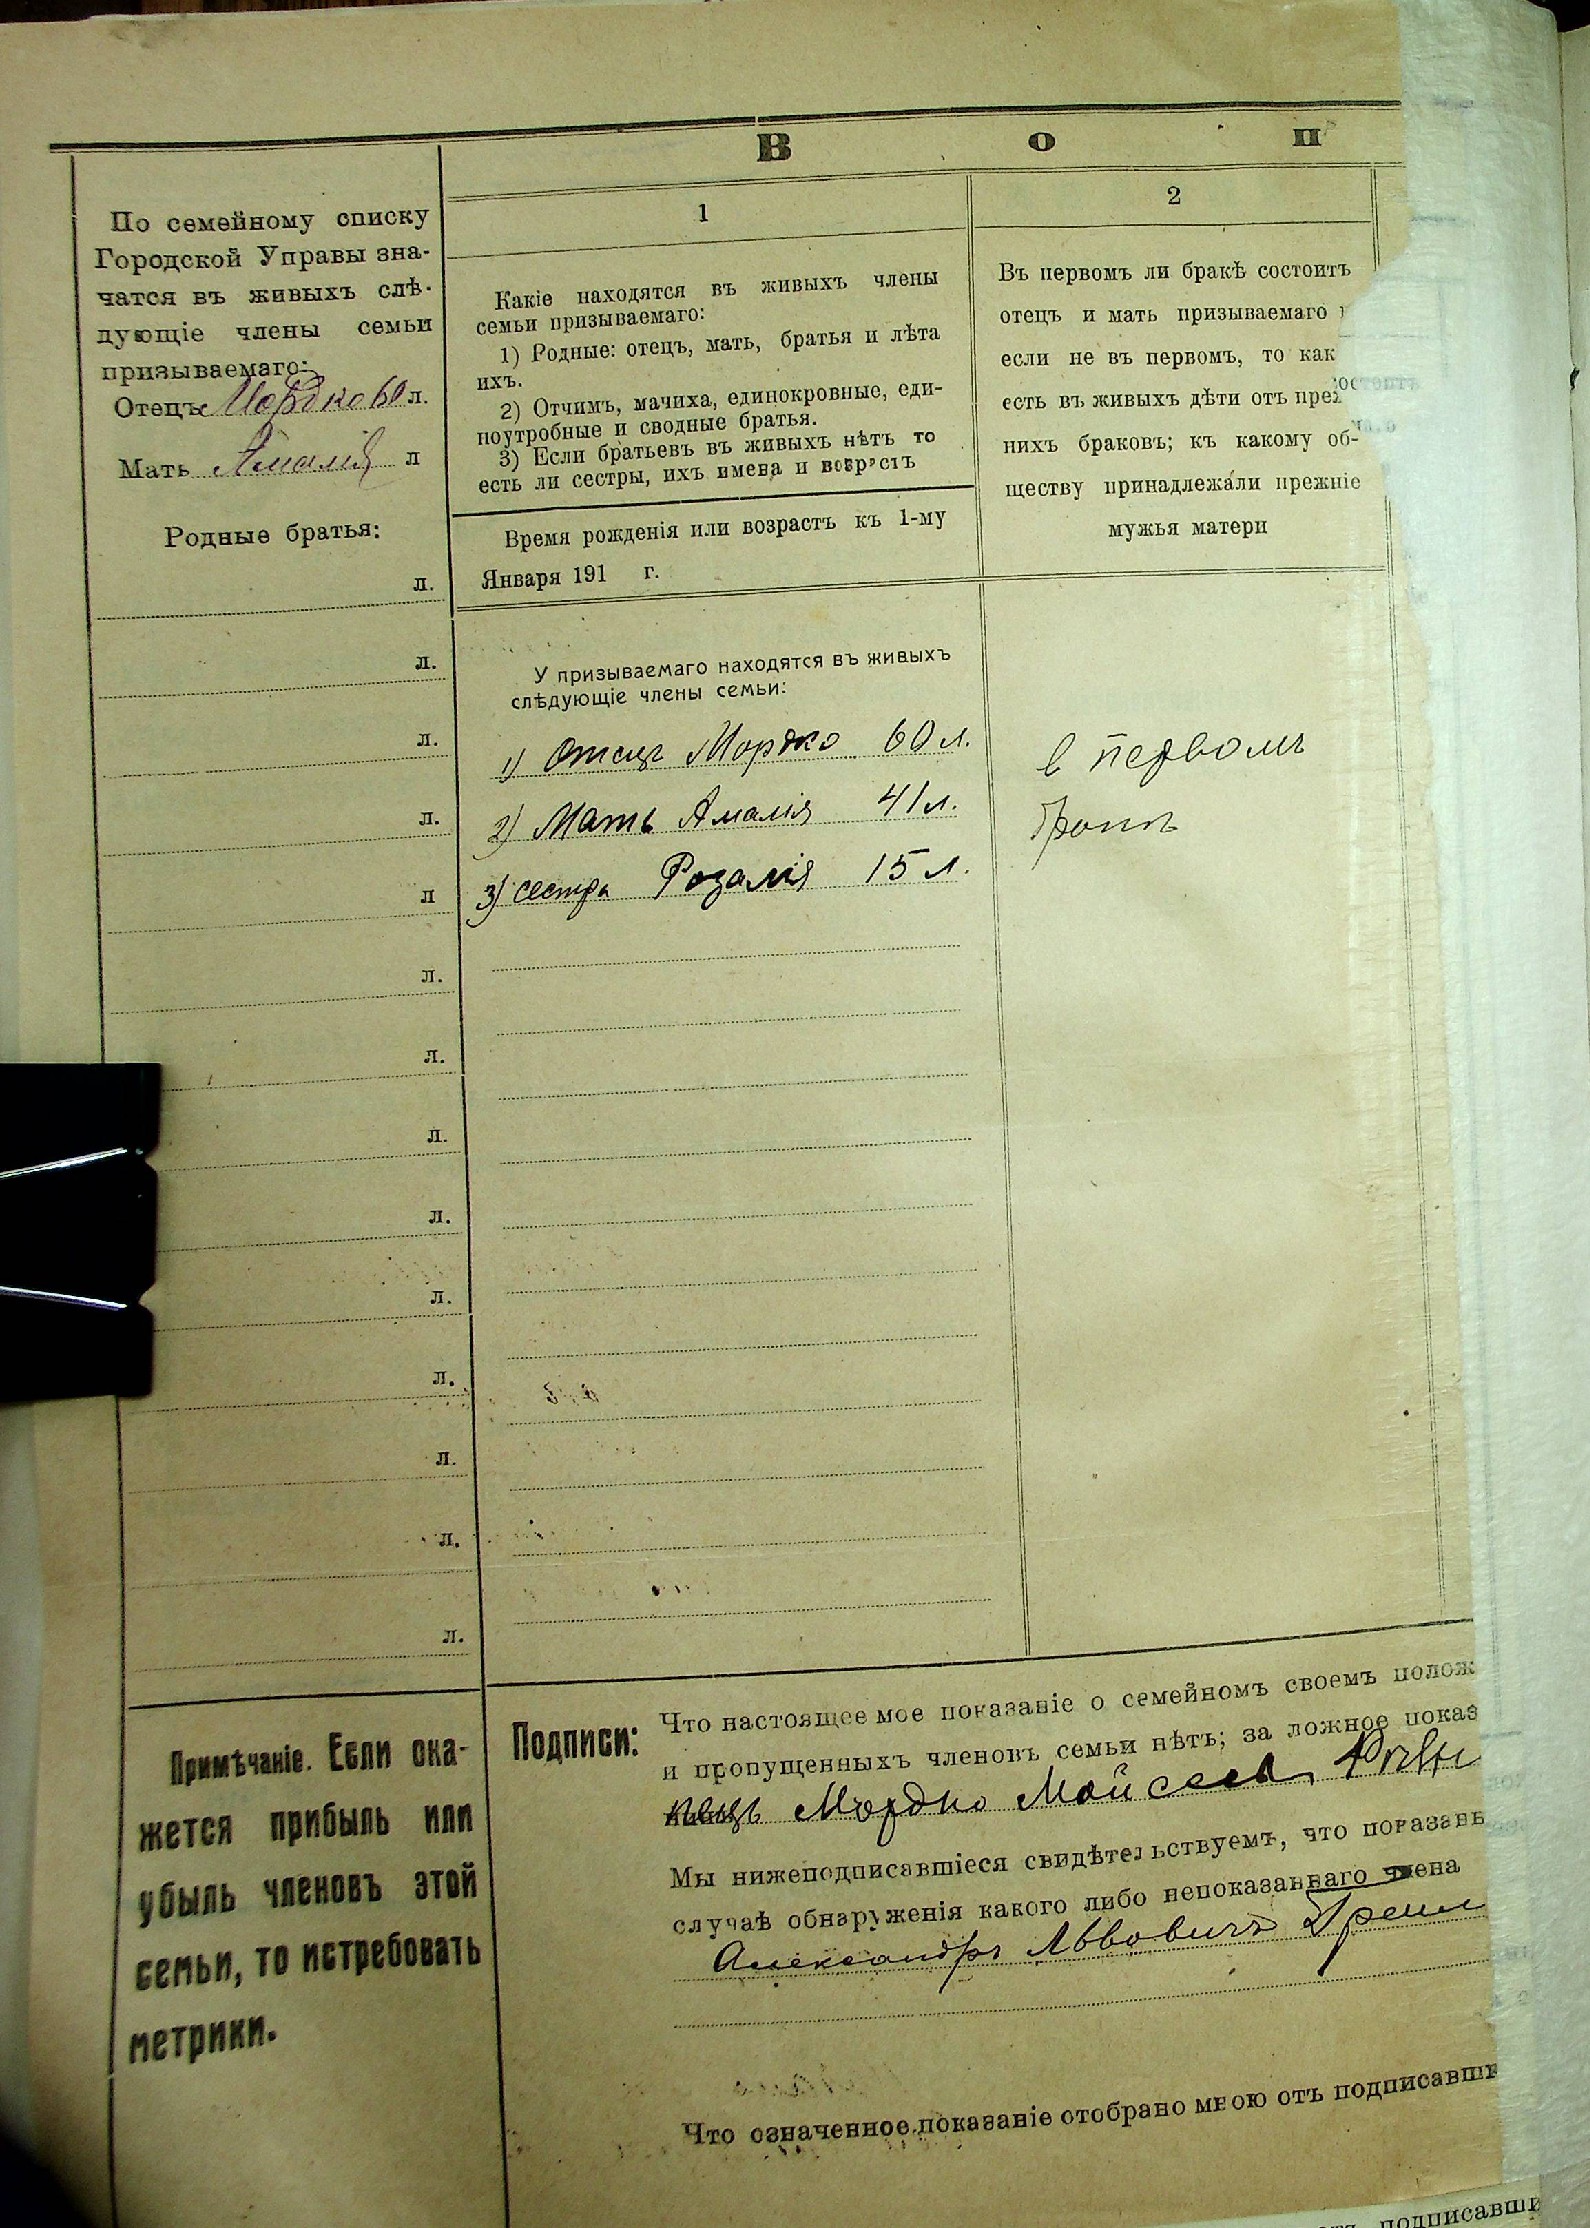 В о п
По семейному списку
Городской Управы зна-
чатся въ живыхъ слѣ-
дующіе члены семьи
призываемаго:
Отецъ Мордко 60 л.
Мать Амалія л
Родные братья:
л.
л.
л.
л.
л
л.
л.
л.
л.
л.
л.
л.
л.
л.
1
Какіе находятся въ живыхъ члены
семьи призываемаго:
1) Родные: отецъ, мать, братья и лѣта
ихъ.
2) Отчимъ, мачиха, единокровные, еди-
поутробные и сводные братья.
3) Если братьевъ въ живыхъ нѣтъ то
есть ли сестры, ихъ имена и возрастъ
Время рожденія или возрастъ къ 1-му
Января 191 г.
У призываемаго находятся въ живыхъ
слѣдующіе члены семьи:
1) Отецъ Мордко 60 л.
2) Мать Амалія 41 л.
3) сестра Розалія 15 л.
2
Въ первомъ ли бракѣ состоитъ
отецъ и мать призываемаго
если не въ первомъ, то как
есть въ живыхъ дѣти отъ преж
нихъ браковъ; къ какому об-
ществу принадлежали прежніе
мужья матери
в первомъ
Примѣчаніе. Если ока-
жется прибыль или
убыль членовъ этой
семьи, то истребовать
метрики.
Подписи:
Что настоящее мое показаніе о семейномъ своемъ полож
и пропущенныхъ членовъ семьи нѣтъ; за ложное показ
Мордко Мойсеев
Мы нижеподписавшіеся свидѣтельствуемъ, что показань
случаѣ обнаруженія какого либо непоказаннаго члена
Александръ Львовичъ
Что означенное показаніе отобрано мною отъ подписавши
подписавши